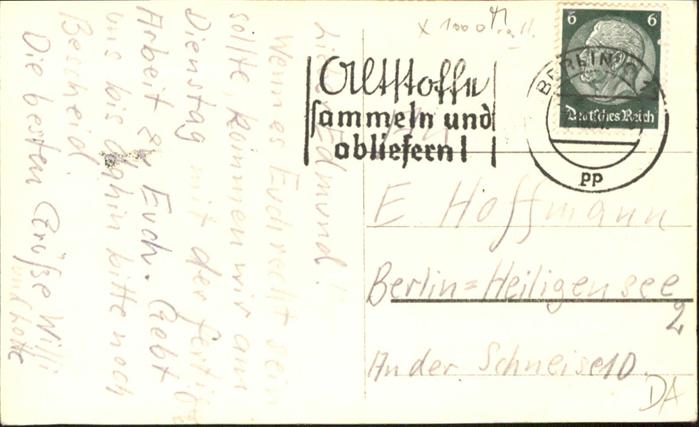 Lieber Edmund!
Wenn es Euch recht sein
sollte, kommen wir am
Dienstag mit der fertigen
Arbeit zu Euch. Gebt
uns bis dahin bitte noch
Bescheid
Die besten Grüße Willi
und Lotte
Altstoffe
sammeln und
abliefern!
6 6
Deutsches Reich
BERLIN
pp
E Hoffmann
Berlin=Heiligensee
2
An der Schneise 10.
DA